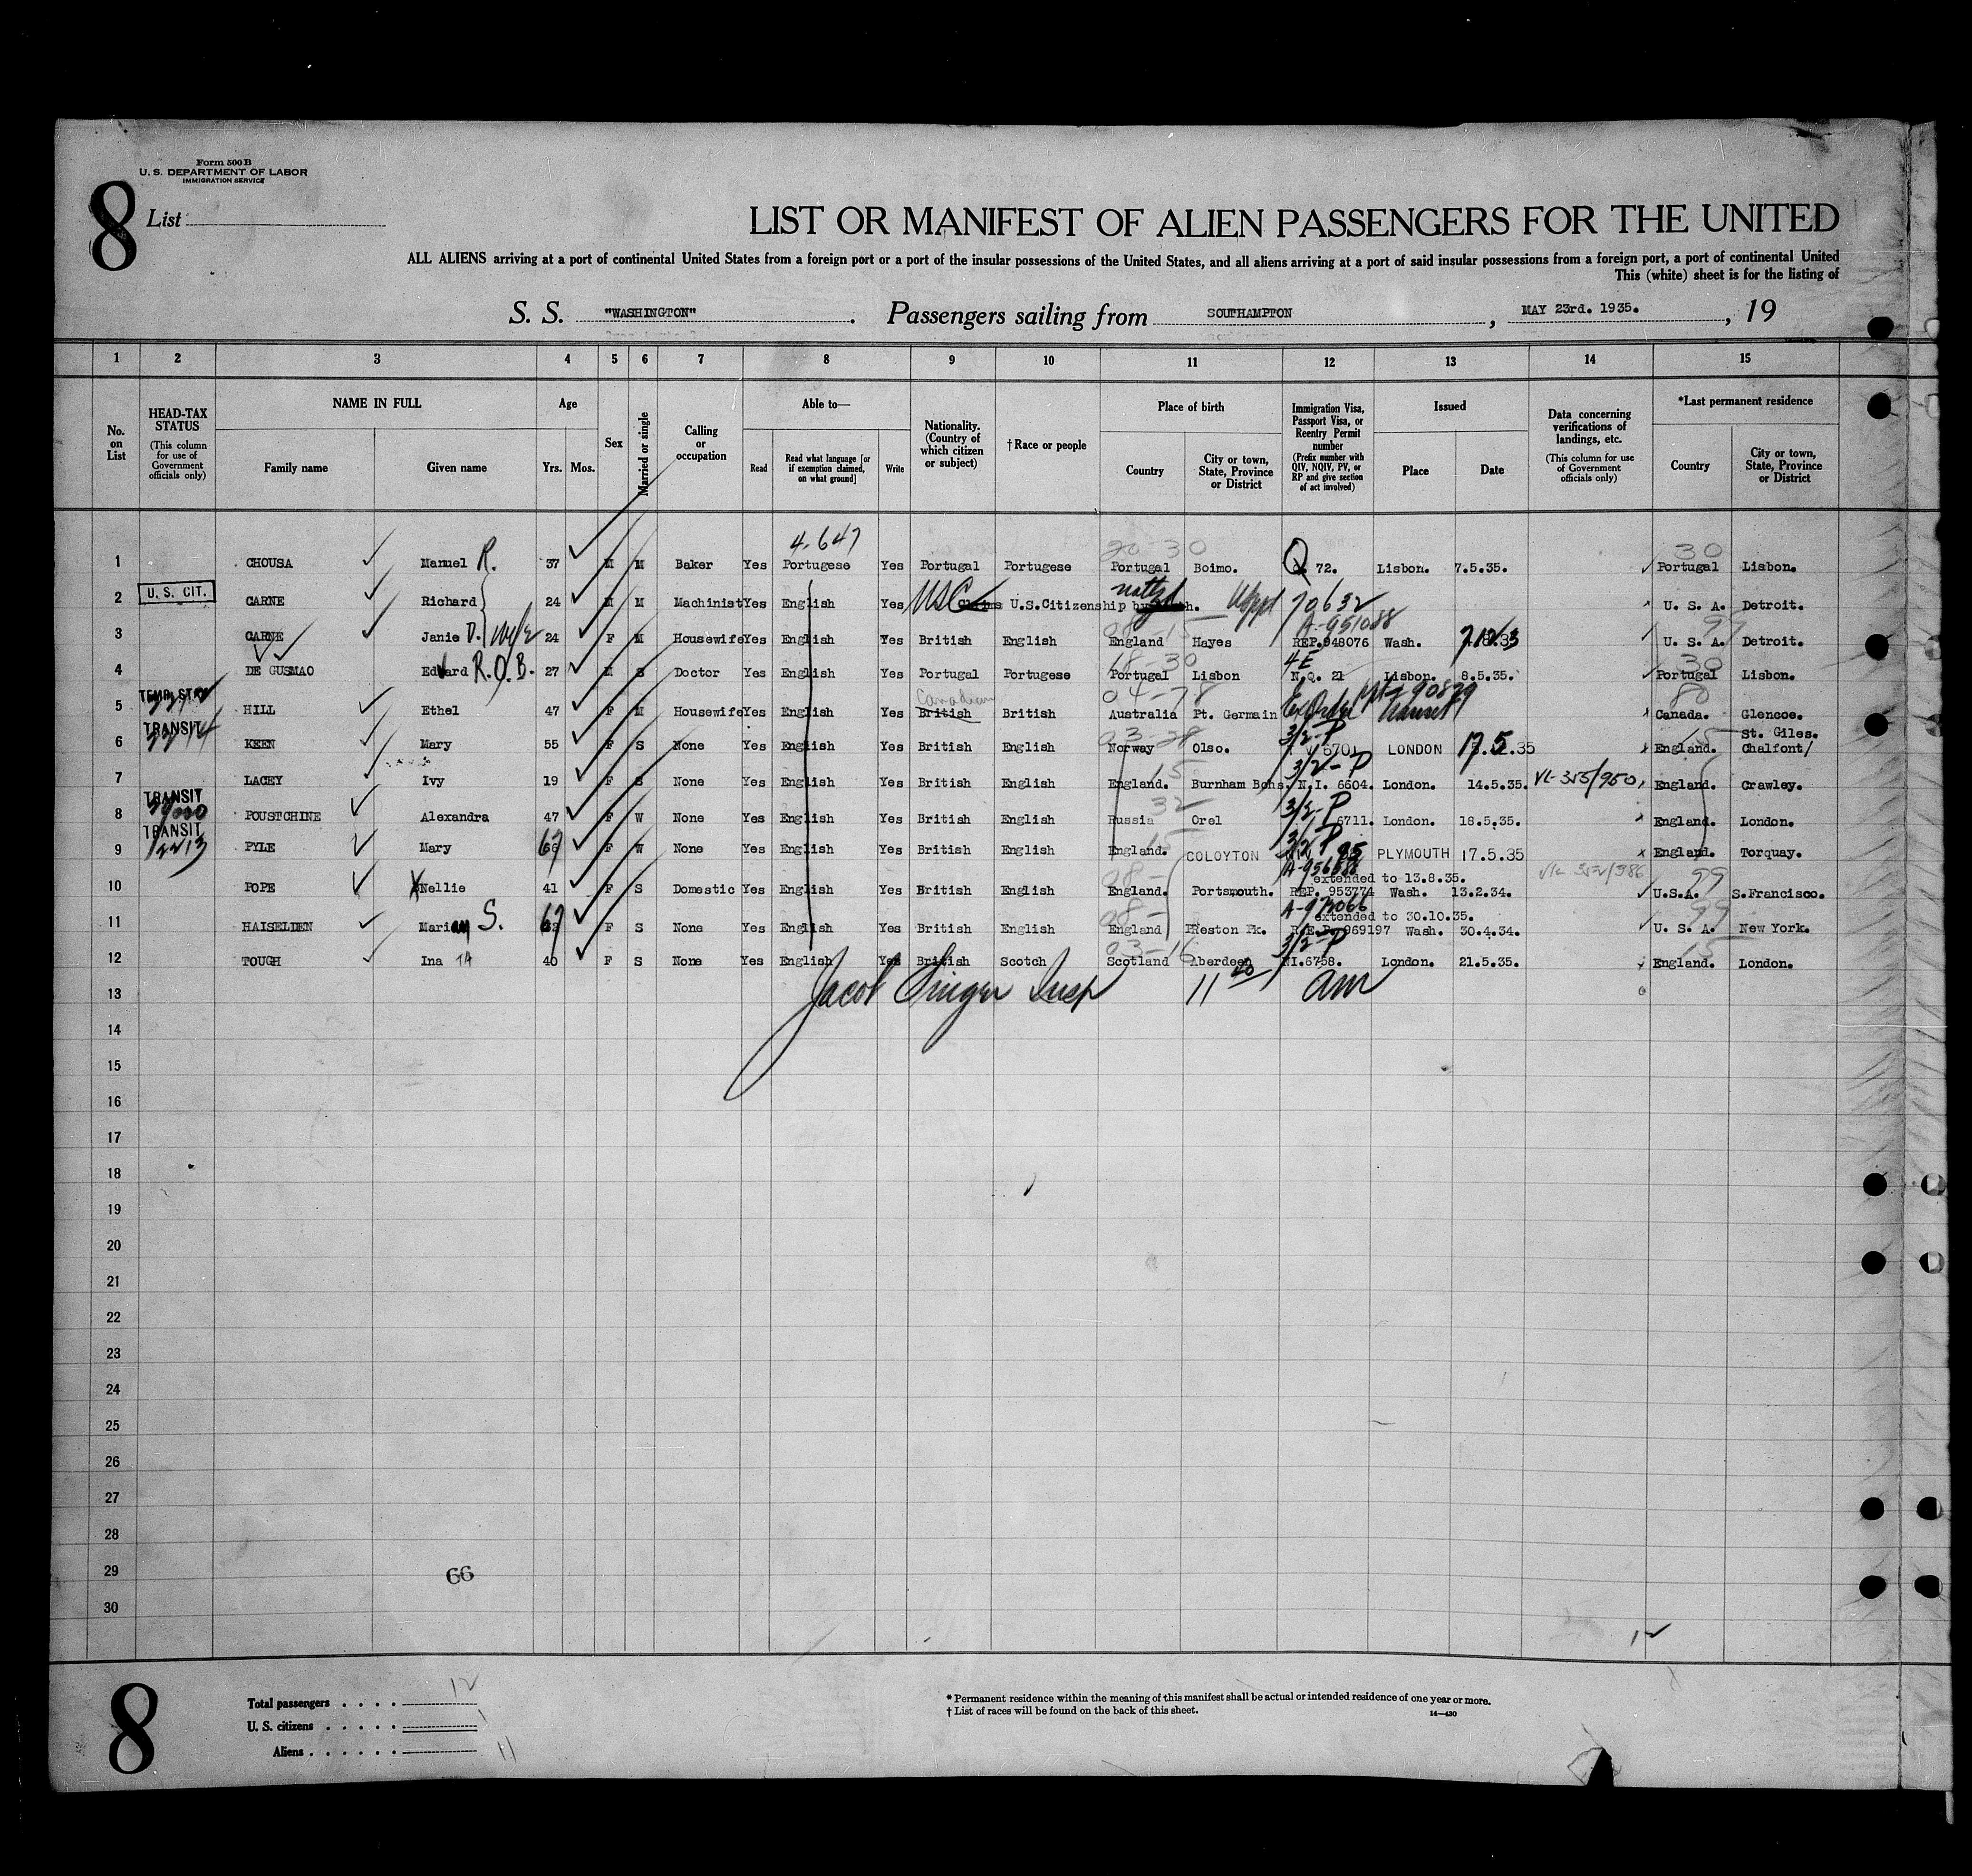 Form 500 B
U. S. DEPARTMENT OF LABOR
IMMIGRATION SERVICE
8 List
LIST OR MANIFEST OF ALIEN PASSENGERS FOR THE UNITED
ALL ALIENS arriving at a port of continental United States from a foreign port or a port of the insular possessions of the United States, and all aliens arriving at a port of said insular possessions from a foreign port, a port of continental United
This (white) sheet is for the listing of
S. S. "WASHINGTON". Passengers sailing from SOUTHAMPTON, MAY 23rd. 1935., 19
1 2 3 4 5 6 7 8 9 10 11 12 13 14 15
No. on List
HEAD-TAX STATUS (This column for use of Government officials only)
NAME IN FULL
Family name
Given name
Age
Yrs. Mos.
Sex
Married or single
Calling or occupation
Able to—
Read
Read what language [or if exemption claimed, on what ground]
Write
Nationality. (Country of which citizen or subject)
†Race or people
Place of birth
Country
City or town, State, Province or District
Immigration Visa, Passport Visa, or Reentry Permit number (Prefix number with QIV, NQIV, PV, or RP and give section of act involved)
Issued
Place
Date
Data concerning verifications of landings, etc. (This column for use of Government officials only)
*Last permanent residence
Country
City or town, State, Province or District
4.647
20-30
30
1 CHOUSA Manuel R. 37 M M Baker Yes Portugese Yes Portugal Portugese Portugal Boimo. Q 72. Lisbon. 7.5.35. Portugal Lisbon.
U. S. CIT.
2 CARNE Richard 24 M M Machinist Yes English Yes USC Claims U.S.Citizenship by 70632 U. S. A. Detroit.
A-951088
99
3 CARNE Janie D. wife 24 F M Housewife Yes English Yes British English England Hayes REP.948076 Wash. U. S. A. Detroit.
18-30
4E
30
4 DE GUSMAO Edward R.O.B. 27 M S Doctor Yes English Yes Portugal Portugese Portugal Lisbon N.Q. 21 Lisbon. 8.5.35. Portugal Lisbon.
TEMP. STAY
Canadian
04-78
80
5 HILL Ethel 47 F M Housewife Yes English Yes British British Australia Pt. Germain Canada. Glencoe.
TRANSIT
03-28
3/2-P
15
St. Giles.
6 KEEN Mary 55 F S None Yes English Yes British English Norway Olso. 6701 LONDON 17.5.35 England. Chalfont/
15
3/2-P
7 LACEY Ivy 19 F S None Yes English Yes British English England. Burnham Bchs. N.I. 6604. London. 14.5.35. VL-355/950 England. Crawley.
TRANSIT
32
3/2-P
8 POUSTCHINE Alexandra 47 F W None Yes English Yes British English Russia Orel 6711. London. 18.5.35. England. London.
TRANSIT
15
3/2-P
9 PYLE Mary 67 F W None Yes English Yes British English England. COLOYTON 95 PLYMOUTH 17.5.35 England. Torquay.
08-
extended to 13.8.35.
99
10 POPE Nellie 41 F S Domestic Yes English Yes British English England. Portsmouth. REP. 953774 Wash. 13.2.34. U.S.A. S.Francisco.
A-973066
08-
extended to 30.10.35.
99
11 HAISELDEN Mariam S. 67 F S None Yes English Yes British English England Preston Pk. R.E.P. 969197 Wash. 30.4.34. U. S. A. New York.
03-16
3/2-P
15
12 TOUGH Ina 40 F S None Yes English Yes British Scotch Scotland Aberdeen NI.6758. London. 21.5.35. England. London.
13 Jacob Singer Insp 11 20 am
14
15
16
17
18
19
20
21
22
23
24
25
26
27
28
29 66
30
12
8
Total passengers . . . . 12
U. S. citizens . . . . . 1
Aliens . . . . . . 11
* Permanent residence within the meaning of this manifest shall be actual or intended residence of one year or more.
† List of races will be found on the back of this sheet.
14—430